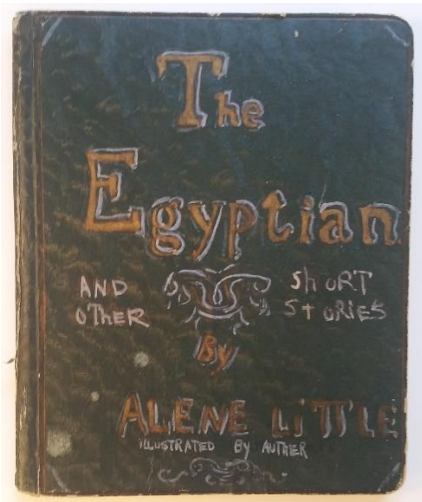 The
Egyptian
AND ShORT
OThER StORiES
By
ALENE LiTTLE
iLLUSTRATED By AUTHER